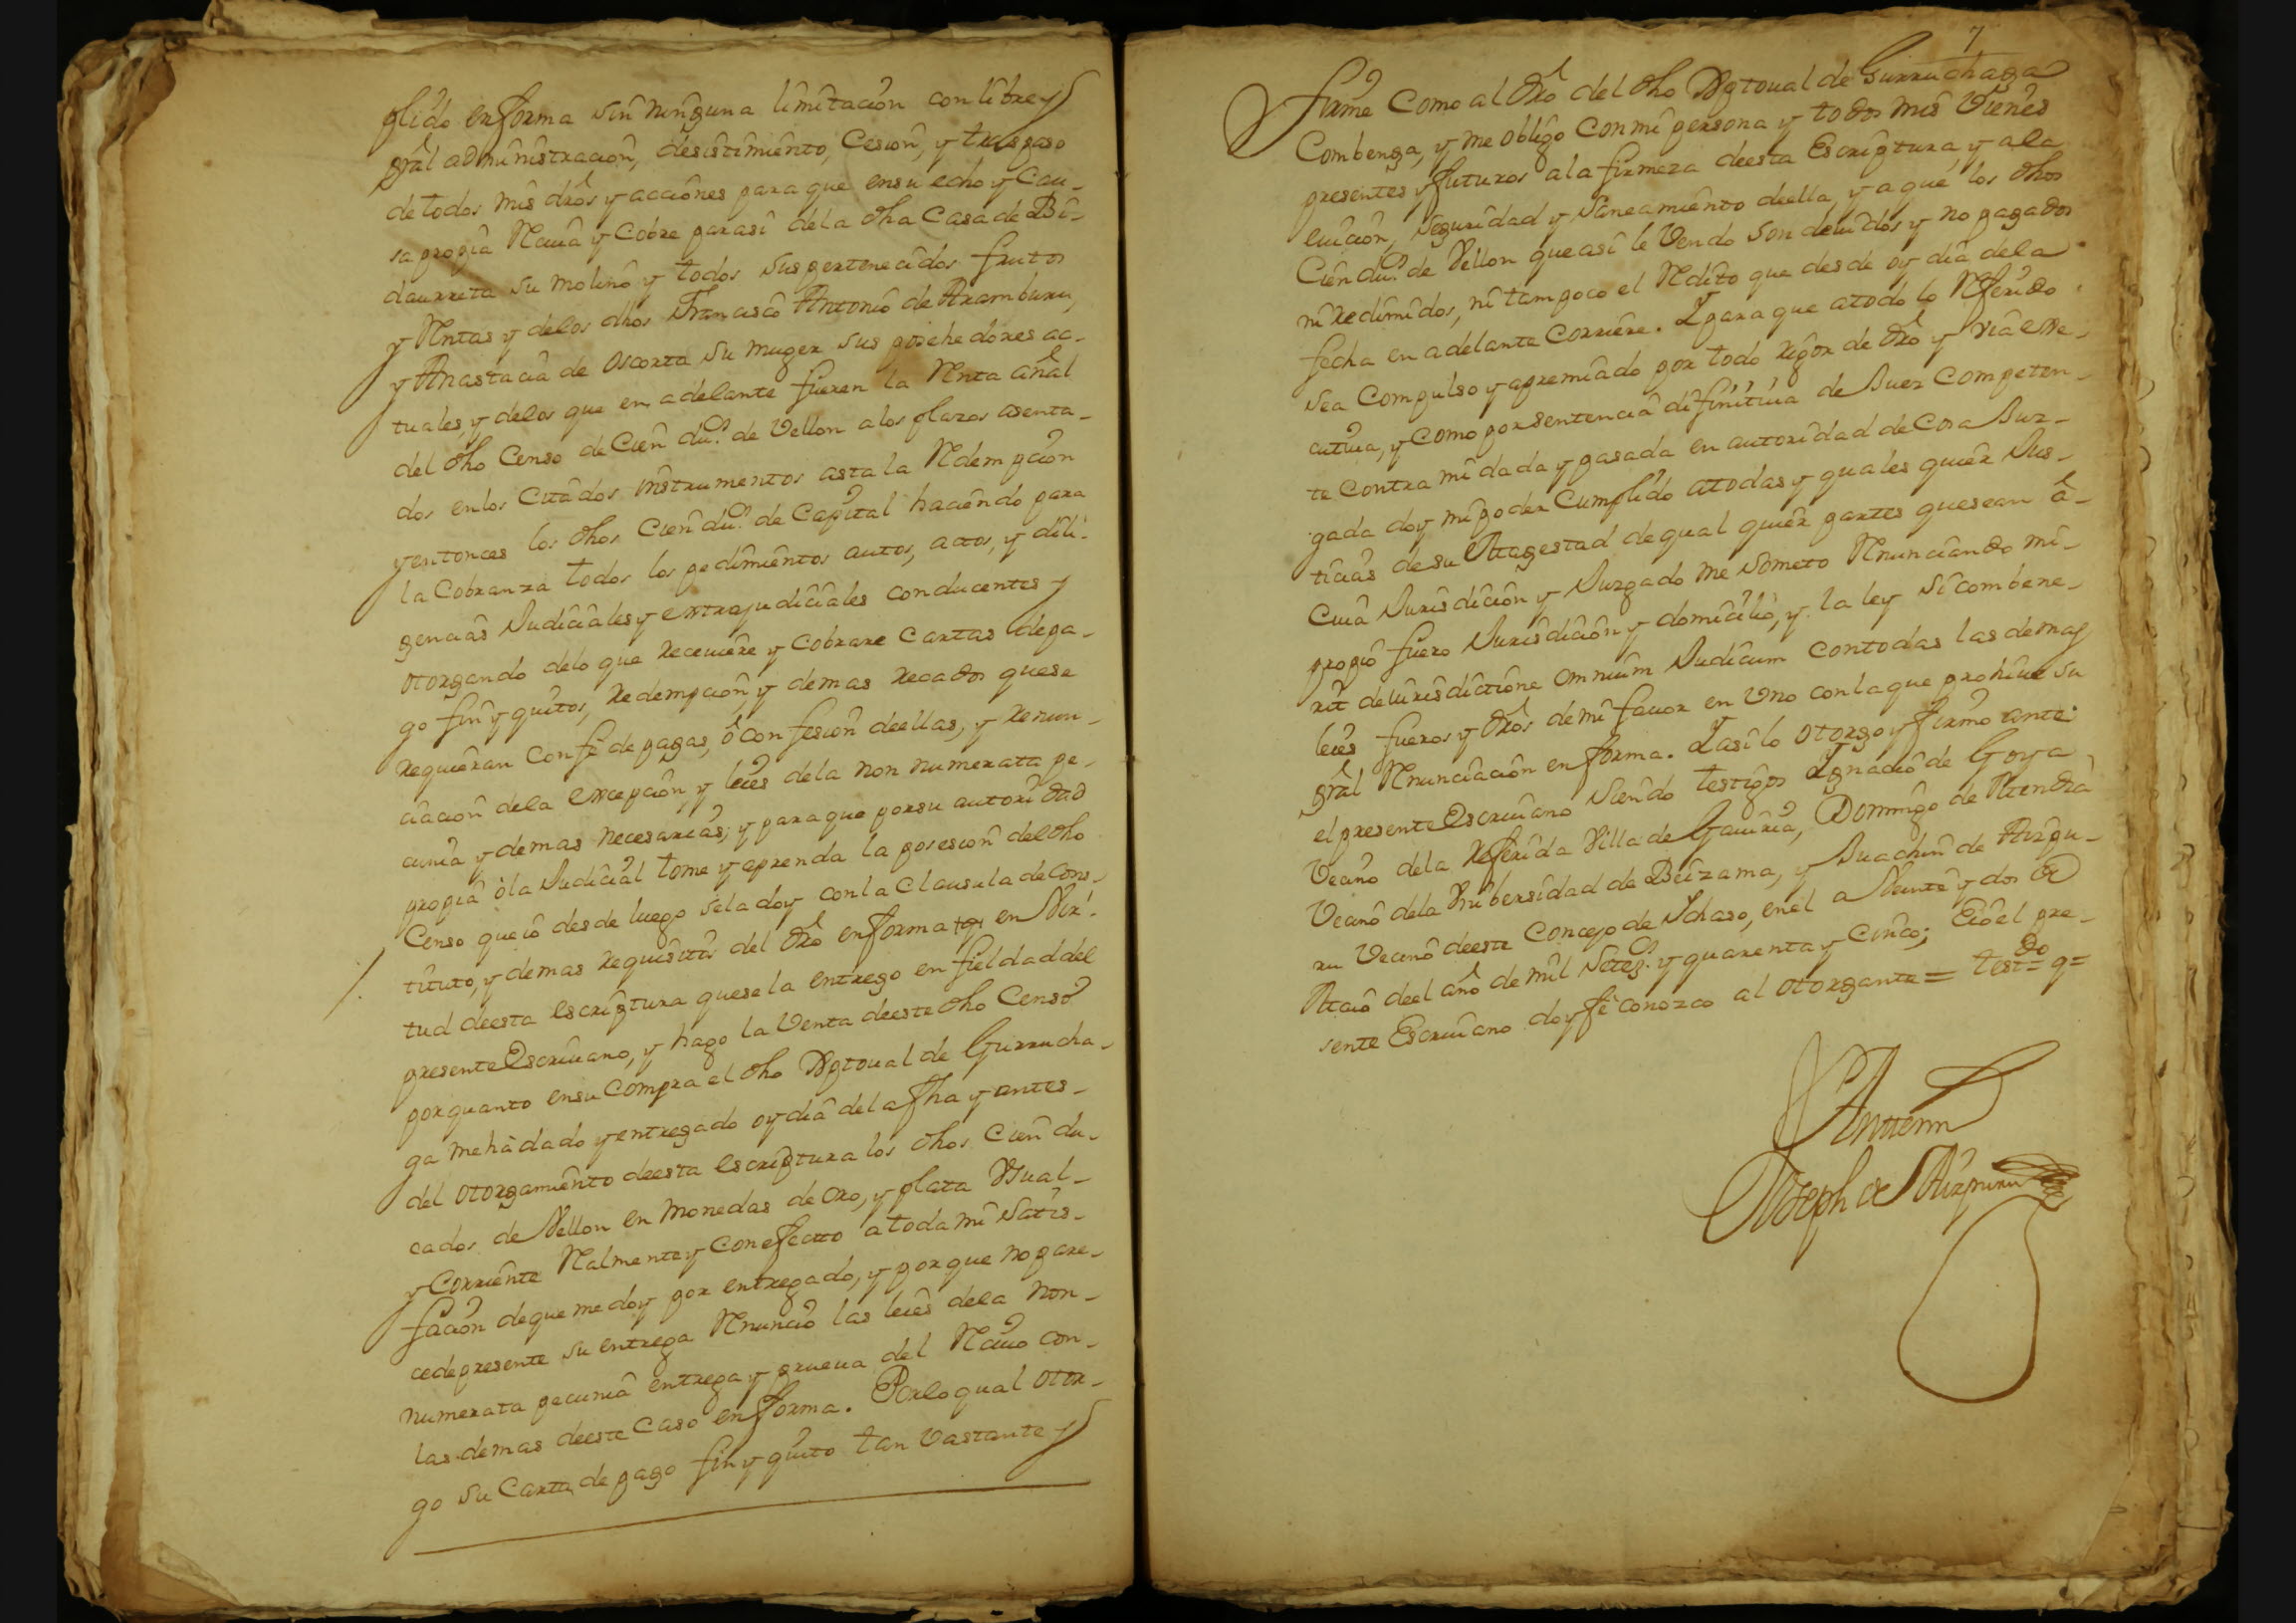 plido en forma sin ninguna limitacion con libre y
gral administracion, desistimiento, Cesion, y traspaso
de todos mis dros y acciones para que en su echo y Cau-
sa propia Reciua y Cobre para si de la dha Casa de Bi-
daurreta su molino y todos sus pertenecidos frutos
y Rentas y de los dhos Francisco Antonio de Aramburu,
y Anastacia de Oscorta su muger sus posehedores ac-
tuales, y delos que en adelante fueren la Renta añal
del dho Censo de Cien du.s de Vellon a los plazos asenta-
dos en los Citados instrumentos asta la Redempcion
y entonces los dhos Cien du.s de Capital haciendo para
la Cobranza todos los pedimientos autos, actos, y dili-
gencias Judiciales y extrajudiciales conducentes y
otorgando delo que receuiere y Cobrare Cartas de pa-
go fin y quitos, redempcion, y demas recados que se
requieran con fe de pagas, ó confesion de ellas, y renun-
ciacion de la excepcion, y leies dela non numerata pe-
cunia y demas necesarias; y para que por su autoridad
propia ò la Judicial tome y aprenda la posesion del dho
Censo que io desde luego se la doy con la Clausula de Cons-
tituto, y demas requisitos del dro en forma q en Vir-
tud de esta escriptura que se la entrego en fieldad del
presente Escriuano, y hago la Venta de este dho Censo
por quanto en su Compra el dho Xptoual de Gurrucha-
ga me hà dado y entregado oy dia de la fha y antes
del otorgamiento de esta escriptura los dhos Cien du-
cados de Vellon en monedas de oro, y plata Vsual
y Corriente Realmente y Con efecto a toda mi Satis-
facion de que me doy por entregado, y por que no pare-
ce de presente su entrega Renuncio las leies dela non
numerata pecunia entrega y prueua del Reciuo con
las demas de este Caso en forma. Por lo qual otor-
go su Carta de pago fin y quito tan Vastante y
7
firme Como al dro del dho Xptoual de Gurruchaga
Combenga, y me obligo Con mi persona y todos mis Vienes
presentes y futuros a la firmeza de esta Escriptura, y a la
euicion, seguridad y saneamiento de ella, y a que los dhos
Cien du.s de Vellon que asi le Vendo son deuidos y no pagados
ni redimidos, ni tampoco el Redito que desde oy dia de la
fecha en adelante Corriere. Y para que a todo lo Referido
sea Compulso y apremiado por todo rigor de dro y via exe-
cutiua, y Como por sentencia difinitiua de Juez Competen-
te contra mi dada y pasada en autoridad de Cosa Juz-
gada doy mi poder Cumplido a todas y quales quier Jus-
ticias de su Magestad de qual quier partes que sean â
Cuia Jurisdicion y Juzgado me someto Renunciando mi
propio fuero Jurisdicion y domicilio, y la ley si combene-
rit de iurisdictione omnium Judicum con todas las demas
leies fueros y dros de mi fauor en Vno con la que prohiue su
gral Renunciacion en forma. Y asi lo otorgo y firmo ante
el presente Escriuano siendo testigos Ygnacio de Goya
Vecino dela referida Villa de Gauiria, Domingo de Atendia
Vecino dela Vnibersidad de Beizama, y Juachin de Aizpu-
ru Vecino de este Concejo de Ychaso, en el a Veinte y dos de
Maio de el año de mil Setez.s y quarenta y Cinco; E io el pre-
sente Escriuano doy fe conozco al otorgante = testdo q=
Ante mi
Joseph de Aizpuru